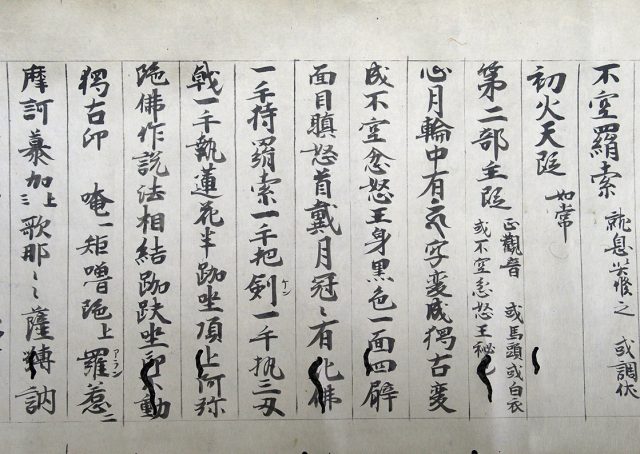 不空羂索 就息災修之 或調伏
初火天段 如常
第二部主段 正觀音 或馬頭或白衣 或不空忿怒王秘
心月輪中有 字変成獨古変
成不空忿怒王身黒色一面四臂
面目瞋怒首戴月冠〻有化佛
一手持羂索一手把剣ケン一手執三叉
戟一手執蓮花半跏坐頂上阿弥
陁佛作說法相結跏趺坐印不動
獨古印 唵一矩嚕陁上羅惹二アラン
摩訶慕加上歌那〻薩嚩訥